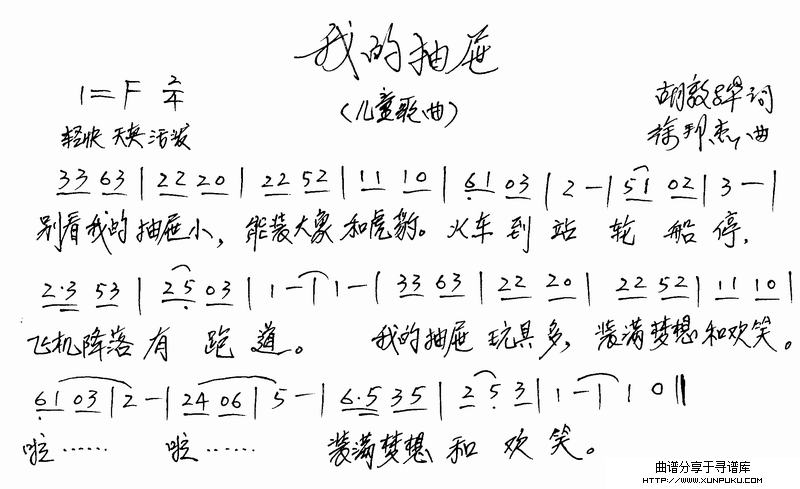 我的抽屉
1=F 2/4
（儿童歌曲）
胡敦骅词
轻快 天真 活泼
徐邦杰曲
33 63 | 22 20 | 22 52 | 11 10 | 61 03 | 2 - | 51 02 | 3 - |
别看我的抽屉小，能装大象和虎豹。火车到站轮船停，
2·3 53 | 25 03 | 1 - | 1 - | 33 63 | 22 20 | 22 52 | 11 10 |
飞机降落有跑道。 我的抽屉玩具多，装满梦想和欢笑。
61 03 | 2 - | 24 06 | 5 - | 6·5 35 | 2 5 3 | 1 - | 1 0 ‖
啦…… 啦…… 装满梦想和欢笑。
曲谱分享于寻谱库
HTTP://WWW.XUNPUKU.COM